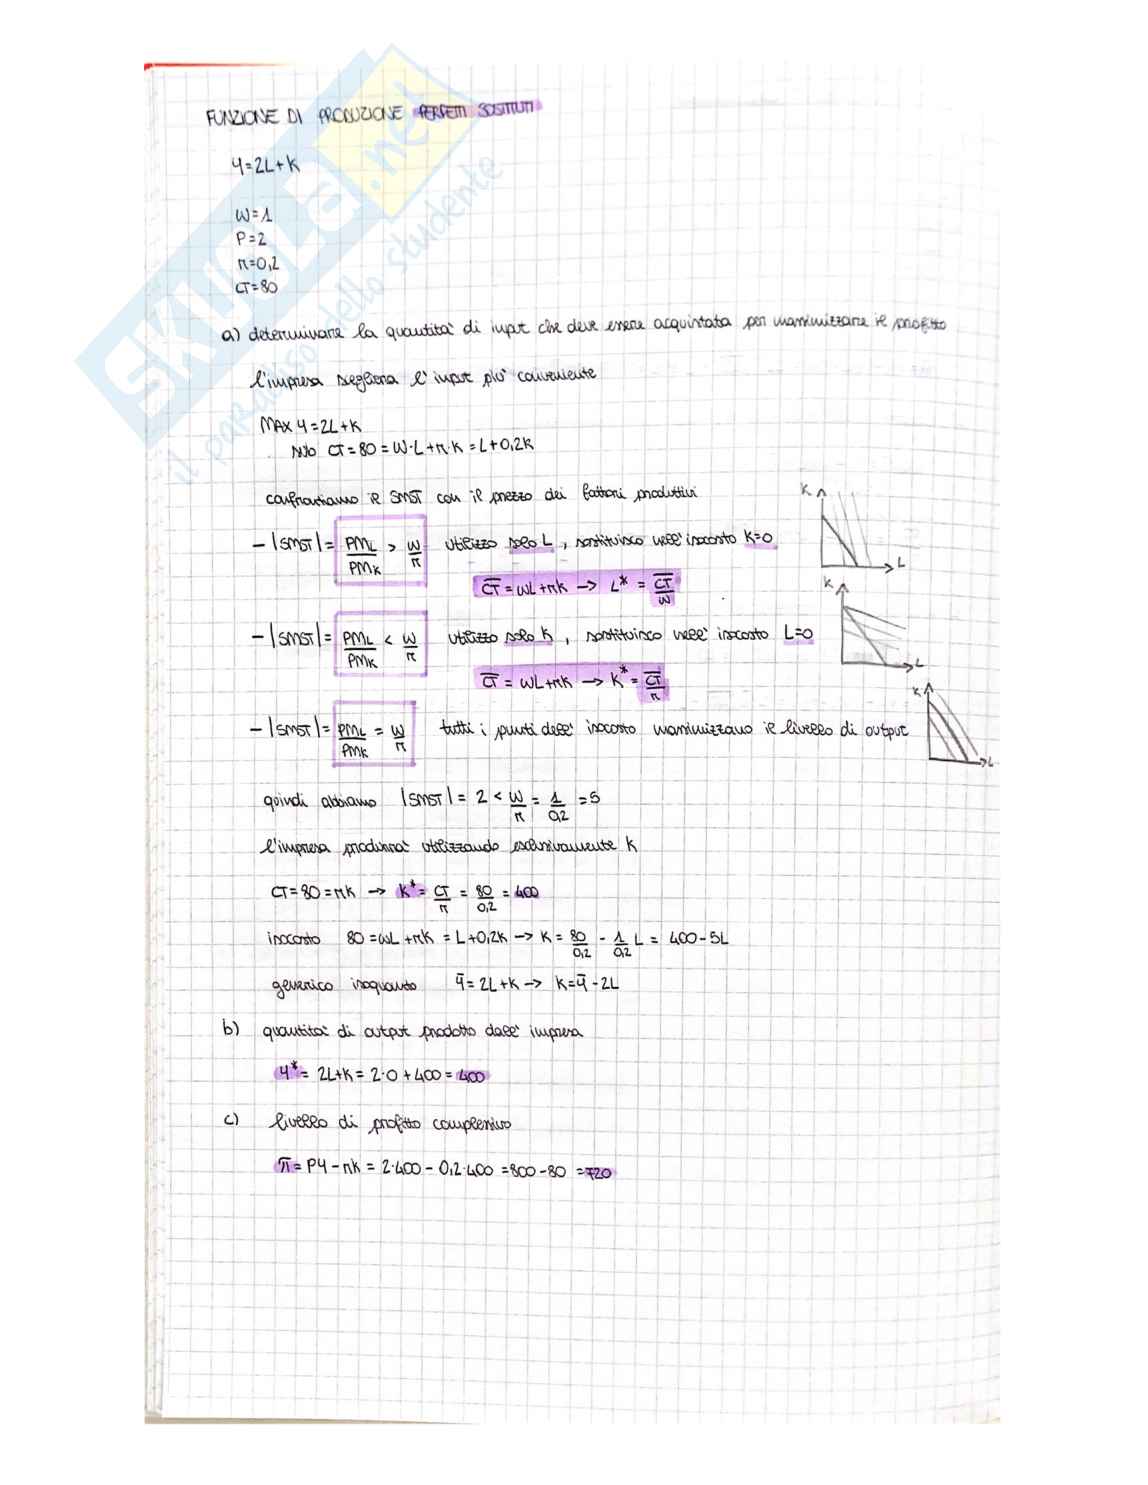 FUNZIONE DI PRODUZIONE PERFETTI SOSTITUTI
Y=2L+K
W=1
P=2
r=0,2
CT=80
a) determinare la quantità di input che deve essere acquistata per massimizzare il profitto
l'impresa sceglierà l'input più conveniente
MAX Y=2L+K
sub CT=80=W·L+r·K=L+0,2K
confrontiamo il SMST con il prezzo dei fattori produttivi
-|SMST|= PML/PMK > W/r utilizzo solo L, sostituisco nell'isocosto K=0
CT=WL+rK → L* = CT/W
-|SMST|= PML/PMK < W/r utilizzo solo K, sostituisco nell'isocosto L=0
CT=WL+rK → K* = CT/r
-|SMST|= PML/PMK = W/r tutti i punti dell'isocosto massimizzano il livello di output
K
L
K
L
K
L
quindi abbiamo |SMST|= 2 < W/r = 1/0,2 = 5
l'impresa produrrà utilizzando esclusivamente K
CT=80=rK → K* = CT/r = 80/0,2 = 400
isocosto 80=WL+rK=L+0,2K → K= 80/0,2 - 1/0,2 L = 400-5L
generico isoquanto Ȳ=2L+K → K=Ȳ-2L
b) quantità di output prodotto dall'impresa
Y*= 2L+K=2·0+400=400
c) livello di profitto complessivo
π=PY-rK=2·400-0,2·400=800-80=720
SKUOLA.net
il paradiso dello studente